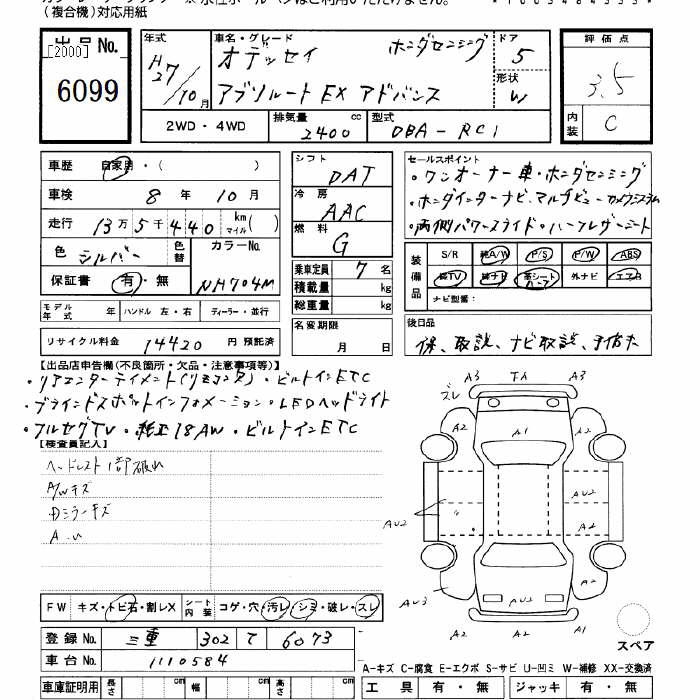 (複合機)対応用紙
出品No.
[2000]
6099
年式
H27/10月
車名・グレード
オデッセイ ホンダセンシング
アブソルート EX アドバンス
ドア
5
形状
W
2WD・4WD
排気量 2400 cc
型式 DBA-RC1
評価点
3.5
内装 C
車歴 自家用・( )
車検 8年 10月
走行 13万5千440 km マイル( )
色 シルバー
色替
カラーNo. NH704M
保証書 有・無
モデル年式 年
ハンドル 左・右
ディーラー・並行
リサイクル料金 14420 円 預託済
シフト DAT
冷房 AAC
燃料 G
乗車定員 7名
積載量 kg
総重量 kg
名変期限
月 日
セールスポイント
・ワンオーナー車・ホンダセンシング
・ホンダインターナビ・マルチビューカメラシステム
・両側パワースライド・ハーフレザーシート
装備品
S/R 純A/W P/S P/W ABS
純TV 純ナビ 革シート 外ナビ エアB
ナビ型番:
後日品
保、取説、ナビ取説、
【出品店申告欄(不良箇所・欠品・注意事項等)】
・リアエンターテイメント(リモコン欠)・ビルトインETC
・ブラインドスポットインフォメーション・LEDヘッドライト
・フルセグTV・純正18AW・ビルトインETC
【検査員記入】
ヘッドレスト1部破れ
A/Wキズ
Dミラーキズ
A.U
FW キズ・トビ石・割レX
シート内装 コゲ・穴・汚レ・シミ・破レ・スレ
登録No. 三重 302 て 6073
車台No. 1110584
車庫証明用 長さ cm 幅 cm 高さ cm
A3 A3
ズレ
A2 A1 A2
AU2
AU2 A2
AU3 A1 A2
A2 A2
スペア
A-キズ C-腐食 E-エクボ S-サビ U-凹ミ W-補修 XX-交換済
工具 有・無 ジャッキ 有・無